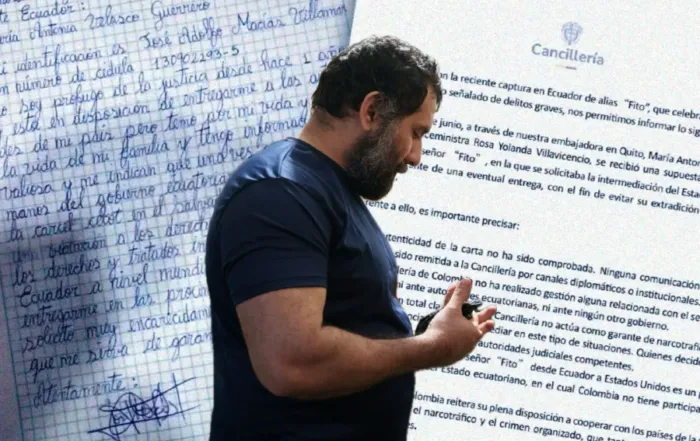 te Ecuador:
María Antonia Velasco Guerrero
identificación es José Adolfo Macías Villamar
n número de cédula 130902293-5
soy prófugo de la justicia desde hace 1 año
está en disposición de entregarme a las a
des de mi país pero temo por mi vida y
la vida de mi familia y tengo informac
valiosa y me indican que una vez
manos del gobierno ecuatoria
la carcel
los derechos y tratados in
Ecuador a nivel mundi
entregarme en las proxim
solicito muy encarecidam
que me sirva de garan
Atentamente:
Cancillería
on la reciente captura en Ecuador de alias "Fito", que celebr
o señalado de delitos graves, nos permitimos informar lo s
junio, a través de nuestra embajadora en Quito, María Anto
ceministra Rosa Yolanda Villavicencio, se recibió una supuest
señor "Fito", en la que se solicitaba la intermediación del Esta
te de una eventual entrega, con el fin de evitar su extradición
rente a ello, es importante precisar:
tenticidad de la carta no ha sido comprobada. Ninguna comunicación
sido remitida a la Cancillería por canales diplomáticos o institucionales
llería de Colombia no ha realizado gestión alguna relacionada con el se
ni ante auto es ecuatorianas, ni ante ningún otro gobierno.
n total cla Cancillería no actúa como garante de narcotraf
diar en este tipo de situaciones. Quienes decid
autoridades judiciales competentes.
señor "Fito" desde Ecuador a Estados Unidos es un p
el Estado ecuatoriano, en el cual Colombia no tiene particip
olombia reitera su plena disposición a cooperar con los países de la
el narcotráfico y el crimen organizado, que